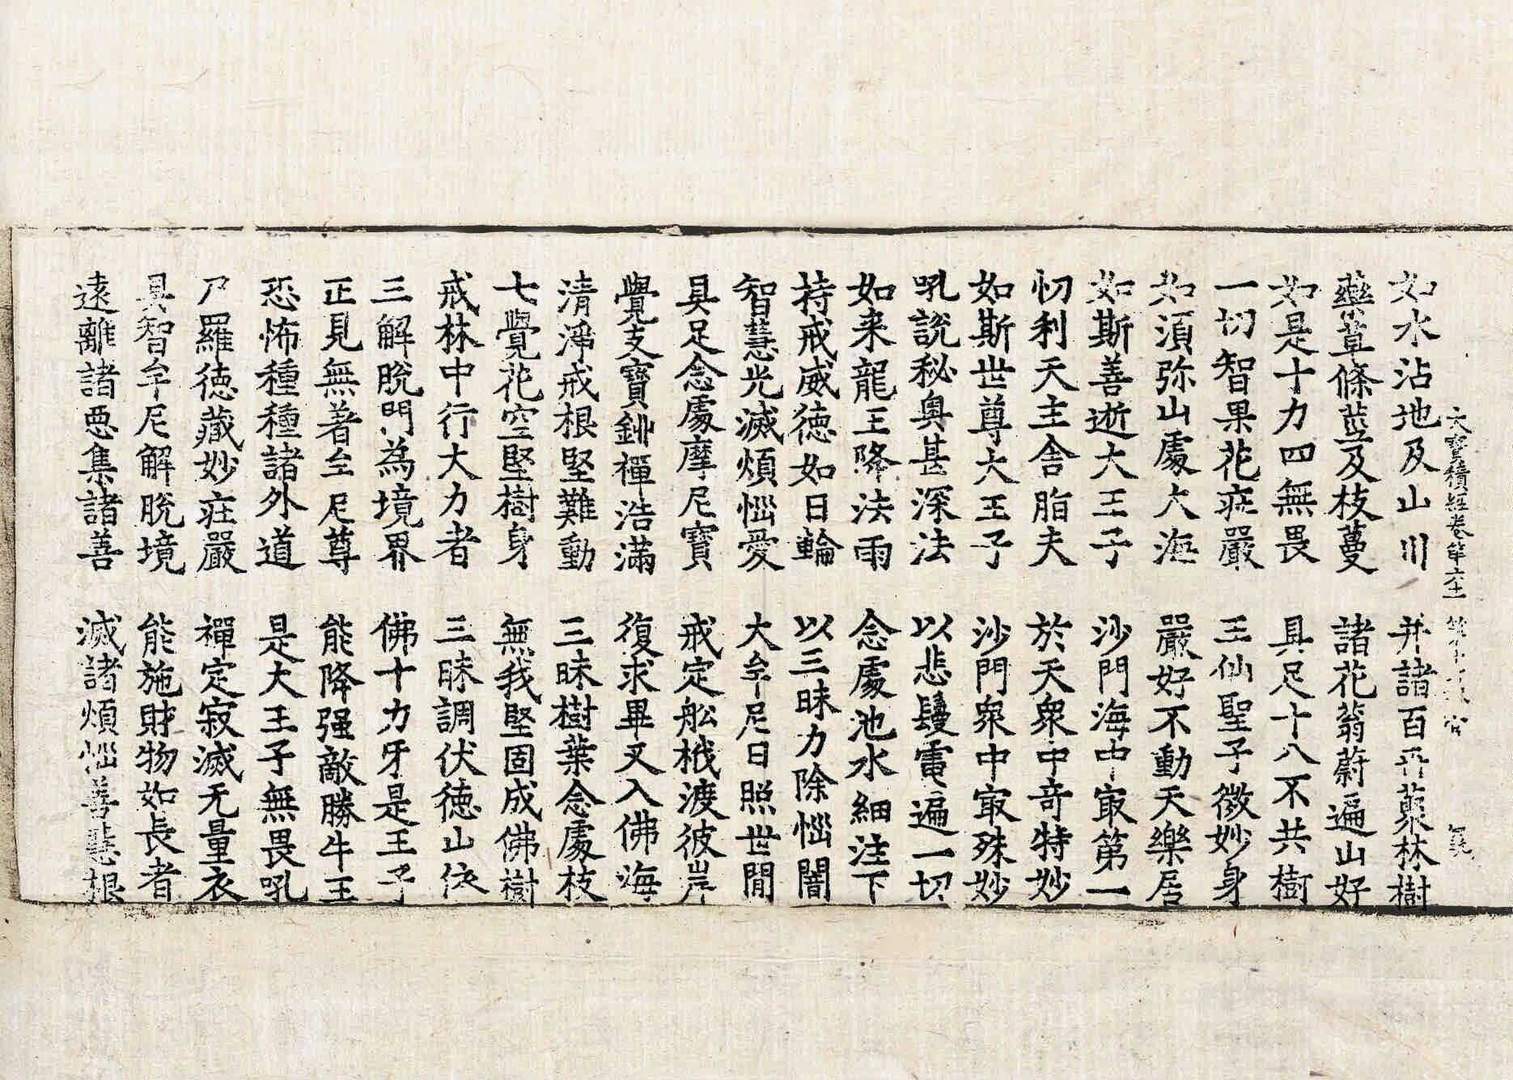 大寶積經卷第六十一 第十六張 官
如水沾地及山川 并諸百卉藂林樹
藥草條莖及枝蔓 諸花蓊蔚遍山好
如是十力四無畏 具足十八不共樹
一切智果花莊嚴 王仙聖子微妙身
如須弥山處大海 嚴好不動天樂居
如斯善逝大王子 沙門海中㝡第一
忉利天主舍脂夫 於天衆中奇特妙
如斯世尊大王子 沙門衆中㝡殊妙
吼說秘奥甚深法 以悲鬘電遍一切
如来龍王降法雨 念處池水細注下
持戒威徳如日輪 以三昧力除惱闇
智慧光滅煩惱愛 大牟尼日照世間
具足念處摩尼寶 戒定舩栰渡彼岸
覺支寶𨥁禪浩滿 復求畢叉入佛海
清淨戒根堅難動 三昧樹葉念處枝
七覺花空堅樹身 無我堅固成佛樹
戒林中行大力者 三昧調伏徳山依
三解脫門為境界 佛十力牙是王子
正見無著牟尼尊 能降强敵勝牛王
恐怖種種諸外道 是大王子無畏吼
尸羅徳藏妙莊嚴 禪定寂滅无量衣
具智牟尼解脫境 能施財物如長者
遠離諸惡集諸善 滅諸煩惱善慧根